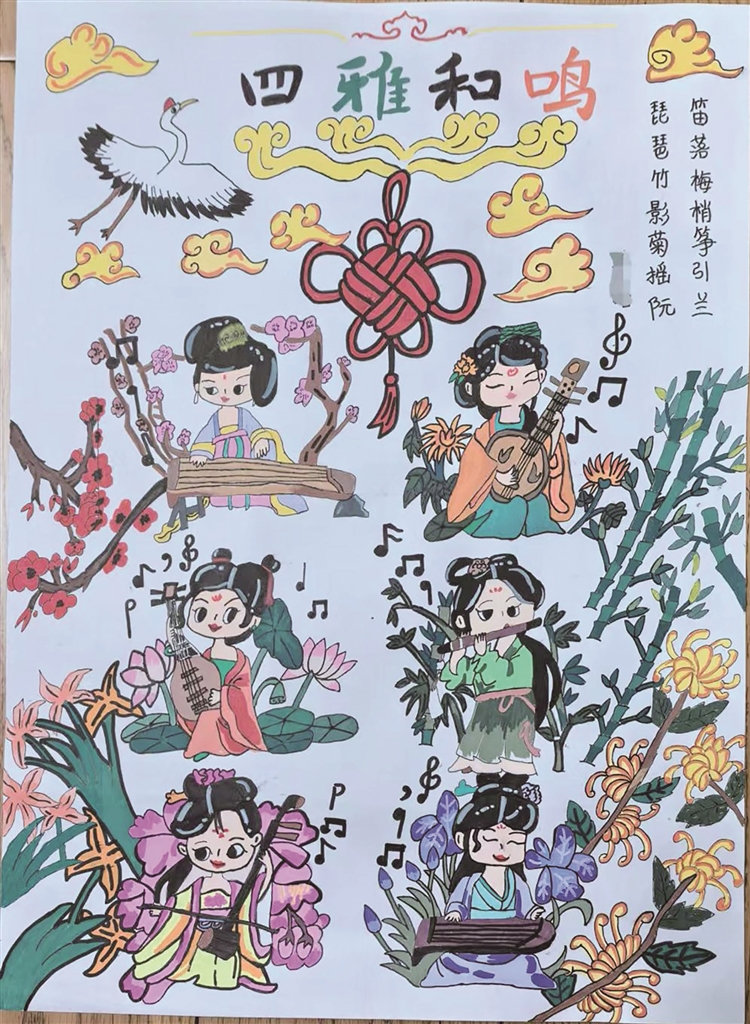 四雅和鸣
笛落梅梢筝引兰
琵琶竹影菊摇阮